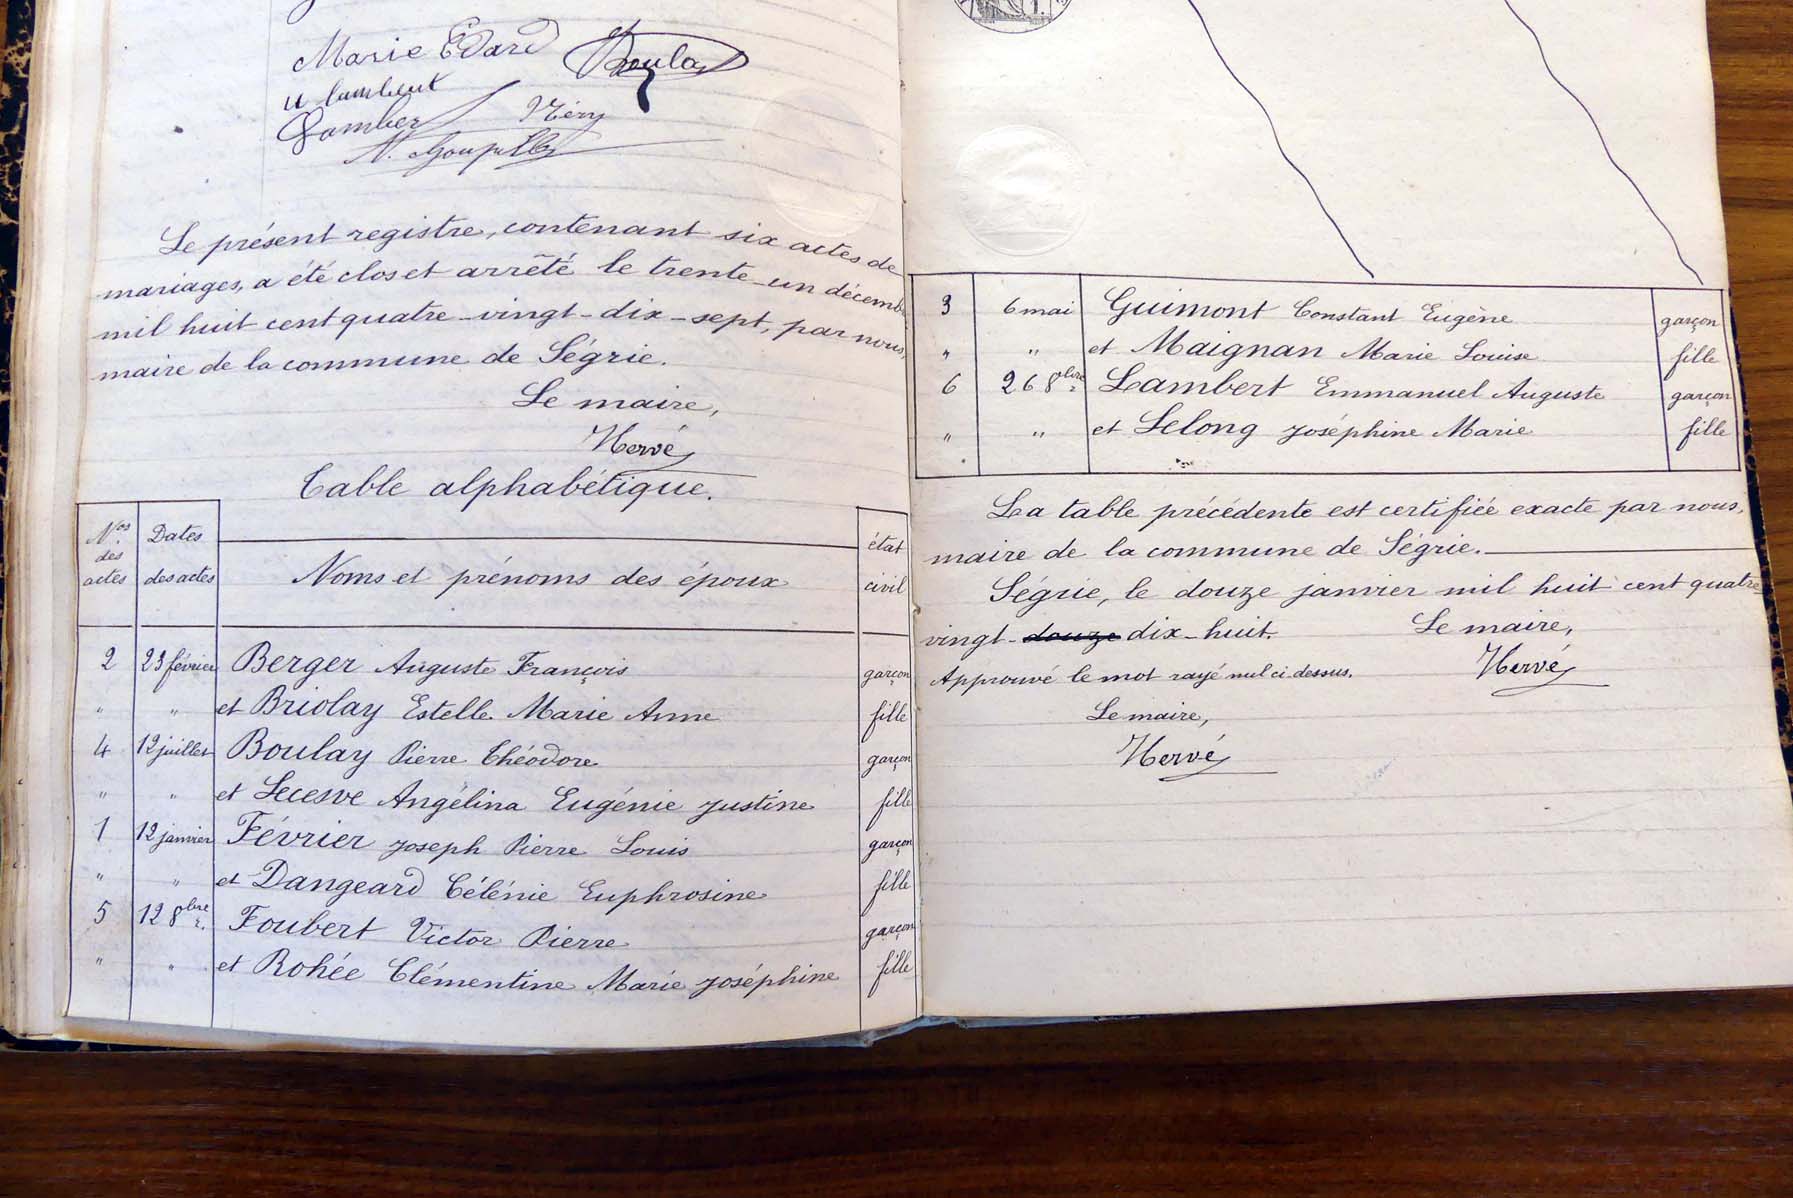 Marie Edard Boulay
Lambert
Méry
Le présent registre, contenant six actes de
mariages, a été clos et arrêté le trente-un décemb
mil huit cent quatre-vingt-dix-sept, par nous,
maire de la commune de Ségrie.
Le maire,
Hervé
Table alphabétique.
Nos des actes
Dates des actes
Noms et prénoms des époux
état civil
2 23 février Berger Auguste François garçon
" " et Briolay Estelle Marie Anne fille
4 12 juillet Boulay Pierre Théodore garçon
" " et Lecesve Angélina Eugénie Justine fille
1 12 janvier Février Joseph Pierre Louis garçon
" " et Dangeard Célénie Euphrosine fille
5 12 8bre. Foubert Victor Pierre garçon
" " et Rohée Clémentine Marie Joséphine fille
3 6 mai Guimont Constant Eugène garçon
" " et Maignan Marie Louise fille
6 26 8bre Lambert Emmanuel Auguste garçon
" " et Lelong Joséphine Marie fille
La table précédente est certifiée exacte par nous,
maire de la commune de Ségrie.
Ségrie, le douze janvier mil huit cent quatre
vingt-douze dix-huit. Le maire,
Approuvé le mot rayé nul ci dessus. Hervé
Le maire,
Hervé